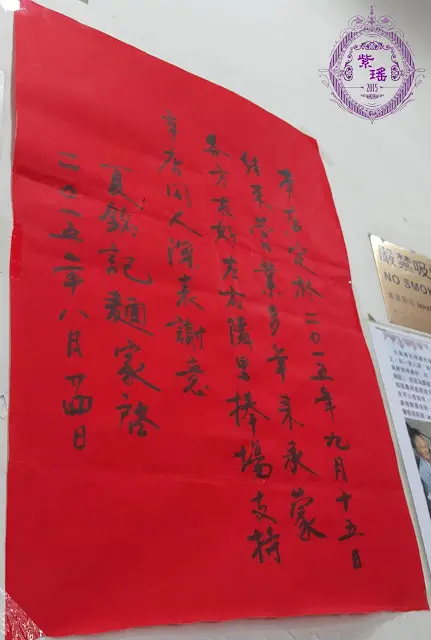 紫瑤
2015
本店定於二〇一五年九月十五日
結束營業多年來承蒙
各方友好左右隣里捧場支持
本店同人深表謝意
夏銘記麵家啓
二〇一五年八月廿四日
嚴禁吸
NO SMOK